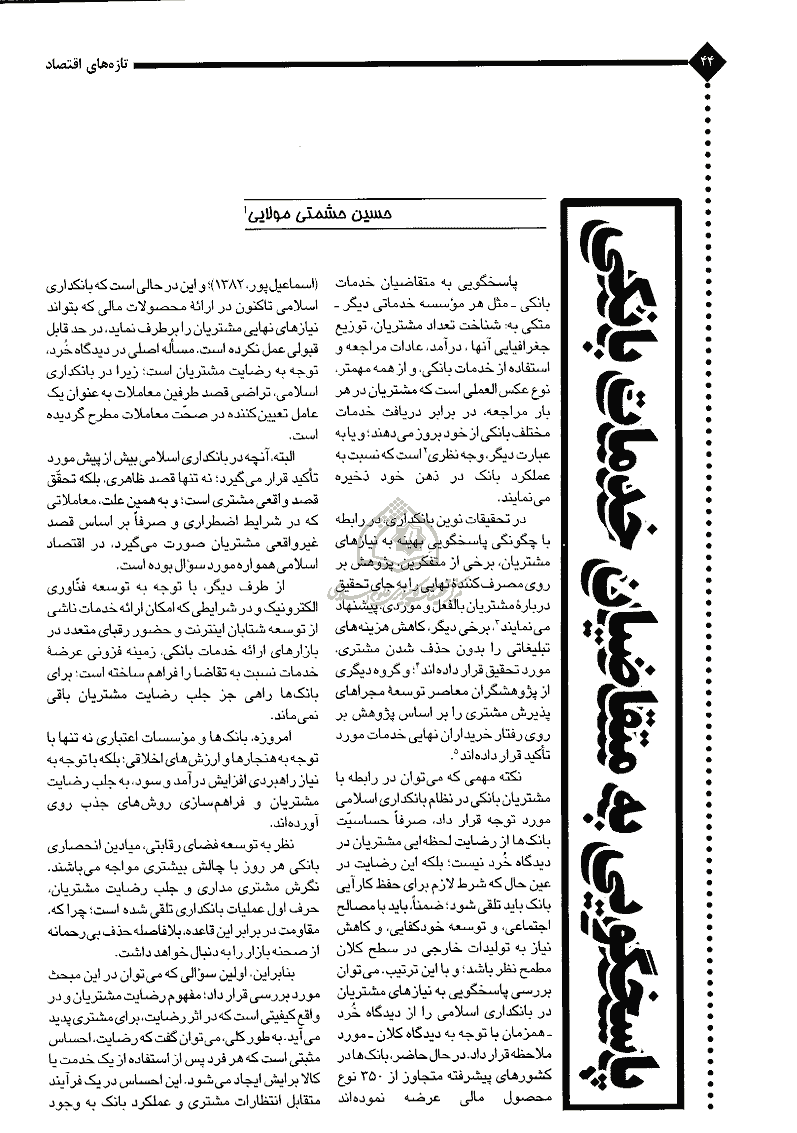 ۴۴
تازه‌های اقتصاد
پاسخگویی به متقاضیان خدمات بانکی
حسین حشمتی مولایی۱
پاسخگویی به متقاضیان خدمات
بانکی ـ مثل هر مؤسسه خدماتی دیگر ـ
متکی به: شناخت تعداد مشتریان، توزیع
جغرافیایی آنها ، درآمد، عادات مراجعه و
استفاده از خدمات بانکی، و از همه مهمتر،
نوع عکس العملی است که مشتریان در هر
بار مراجعه، در برابر دریافت خدمات
مختلف بانکی از خود بروز می‌دهند؛ و یا به
عبارت دیگر، وجه نظری۲ است که نسبت به
عملکرد بانک در ذهن خود ذخیره
می‌نمایند.
در تحقیقات نوین بانکداری، در رابطه
با چگونگی پاسخگویی بهینه به نیازهای
مشتریان، برخی از متفکرین، پژوهش بر
روی مصرف‌کنندهٔ نهایی را به جای تحقیق
دربارهٔ مشتریان بالفعل و موردی، پیشنهاد
می‌نمایند۳، برخی دیگر، کاهش هزینه‌های
تبلیغاتی را بدون حذف شدن مشتری،
مورد تحقیق قرار داده‌اند۴؛ و گروه دیگری
از پژوهشگران معاصر توسعهٔ مجراهای
پذیرش مشتری را بر اساس پژوهش بر
روی رفتار خریداران نهایی خدمات مورد
تأکید قرار داده‌اند۵.
نکته مهمی که می‌توان در رابطه با
مشتریان بانکی در نظام بانکداری اسلامی
مورد توجه قرار داد، صرفاً حساسیّت
بانک‌ها از رضایت لحظه‌ایی مشتریان در
دیدگاه خُرد نیست؛ بلکه این رضایت در
عین حال که شرط لازم برای حفظ کارآیی
بانک باید تلقی شود؛ ضمناً، باید با مصالح
اجتماعی، و توسعه خودکفایی، و کاهش
نیاز به تولیدات خارجی در سطح کلان
مطمح نظر باشد؛ و با این ترتیب، می‌توان
بررسی پاسخگویی به نیازهای مشتریان
در بانکداری اسلامی را از دیدگاه خُرد
ـ همزمان با توجه به دیدگاه کلان ـ مورد
ملاحظه قرار داد. در حال حاضر، بانک‌ها در
کشورهای پیشرفته متجاوز از ۳۵۰ نوع
محصول مالی عرضه نموده‌اند
(اسماعیل‌پور، ۱۳۸۲)؛ و این در حالی است که بانکداری
اسلامی تاکنون در ارائهٔ محصولات مالی که بتواند
نیازهای نهایی مشتریان را برطرف نماید، در حد قابل
قبولی عمل نکرده است. مسأله اصلی در دیدگاه خُرد،
توجه به رضایت مشتریان است؛ زیرا در بانکداری
اسلامی، تراضی قصد طرفین معاملات به عنوان یک
عامل تعیین‌کننده در صحّت معاملات مطرح گردیده
است.
البته، آنچه در بانکداری اسلامی بیش از پیش مورد
تأکید قرار می‌گیرد؛ نه تنها قصد ظاهری، بلکه تحقّق
قصد واقعی مشتری است؛ و به همین علت، معاملاتی
که در شرایط اضطراری و صرفاً بر اساس قصد
غیرواقعی مشتریان صورت می‌گیرد، در اقتصاد
اسلامی همواره مورد سوال بوده است.
از طرف دیگر، با توجه به توسعه فنّاوری
الکترونیک و در شرایطی که امکان ارائه خدمات ناشی
از توسعه شتابان اینترنت و حضور رقبای متعدد در
بازارهای ارائه خدمات بانکی، زمینه فزونی عرضهٔ
خدمات نسبت به تقاضا را فراهم ساخته است؛ برای
بانک‌ها راهی جز جلب رضایت مشتریان باقی
نمی‌ماند.
امروزه، بانک‌ها و مؤسسات اعتباری نه تنها با
توجه به هنجارها و ارزش‌های اخلاقی؛ بلکه با توجه به
نیاز راهبردی افزایش درآمد و سود، به جلب رضایت
مشتریان و فراهم‌سازی روش‌های جذب روی
آورده‌اند.
نظر به توسعه فضای رقابتی، میادین انحصاری
بانکی هر روز با چالش بیشتری مواجه می‌باشند.
نگرش مشتری مداری و جلب رضایت مشتریان،
حرف اول عملیات بانکداری تلقی شده است؛ چرا که،
مقاومت در برابر این قاعده، بلافاصله حذف بی‌رحمانه
از صحنه بازار را به دنبال خواهد داشت.
بنابراین، اولین سوالی که می‌توان در این مبحث
مورد بررسی قرار داد؛ مفهوم رضایت مشتریان و در
واقع کیفیتی است که در اثر رضایت، برای مشتری پدید
می‌آید. به طور کلی، می‌توان گفت که رضایت، احساس
مثبتی است که هر فرد پس از استفاده از یک خدمت یا
کالا برایش ایجاد می‌شود. این احساس در یک فرآیند
متقابل انتظارات مشتری و عملکرد بانک به وجود